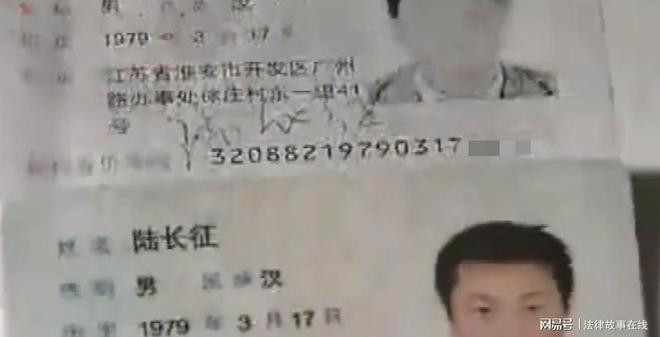 男 汉
1979 年 3 月 17
江苏省淮安市开发区广州
路办事处徐庄村东一组41
号
32088219790317
姓名 陆长征
性别 男 民族 汉
出生 1979 年 3 月 17 日
网易号 | 法律故事在线